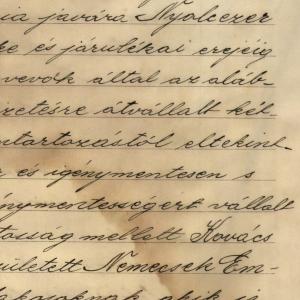 ia javára Nyolcezer
ke és járulékai erejéig
vevők által az aláb-
zetésre átvállalt két-
ntartozástól eltekint-
r és igénymentesen s
énymentességért vállalt
tosság mellett Kovács
született Nemecsek Em-
lakosoknak akik is